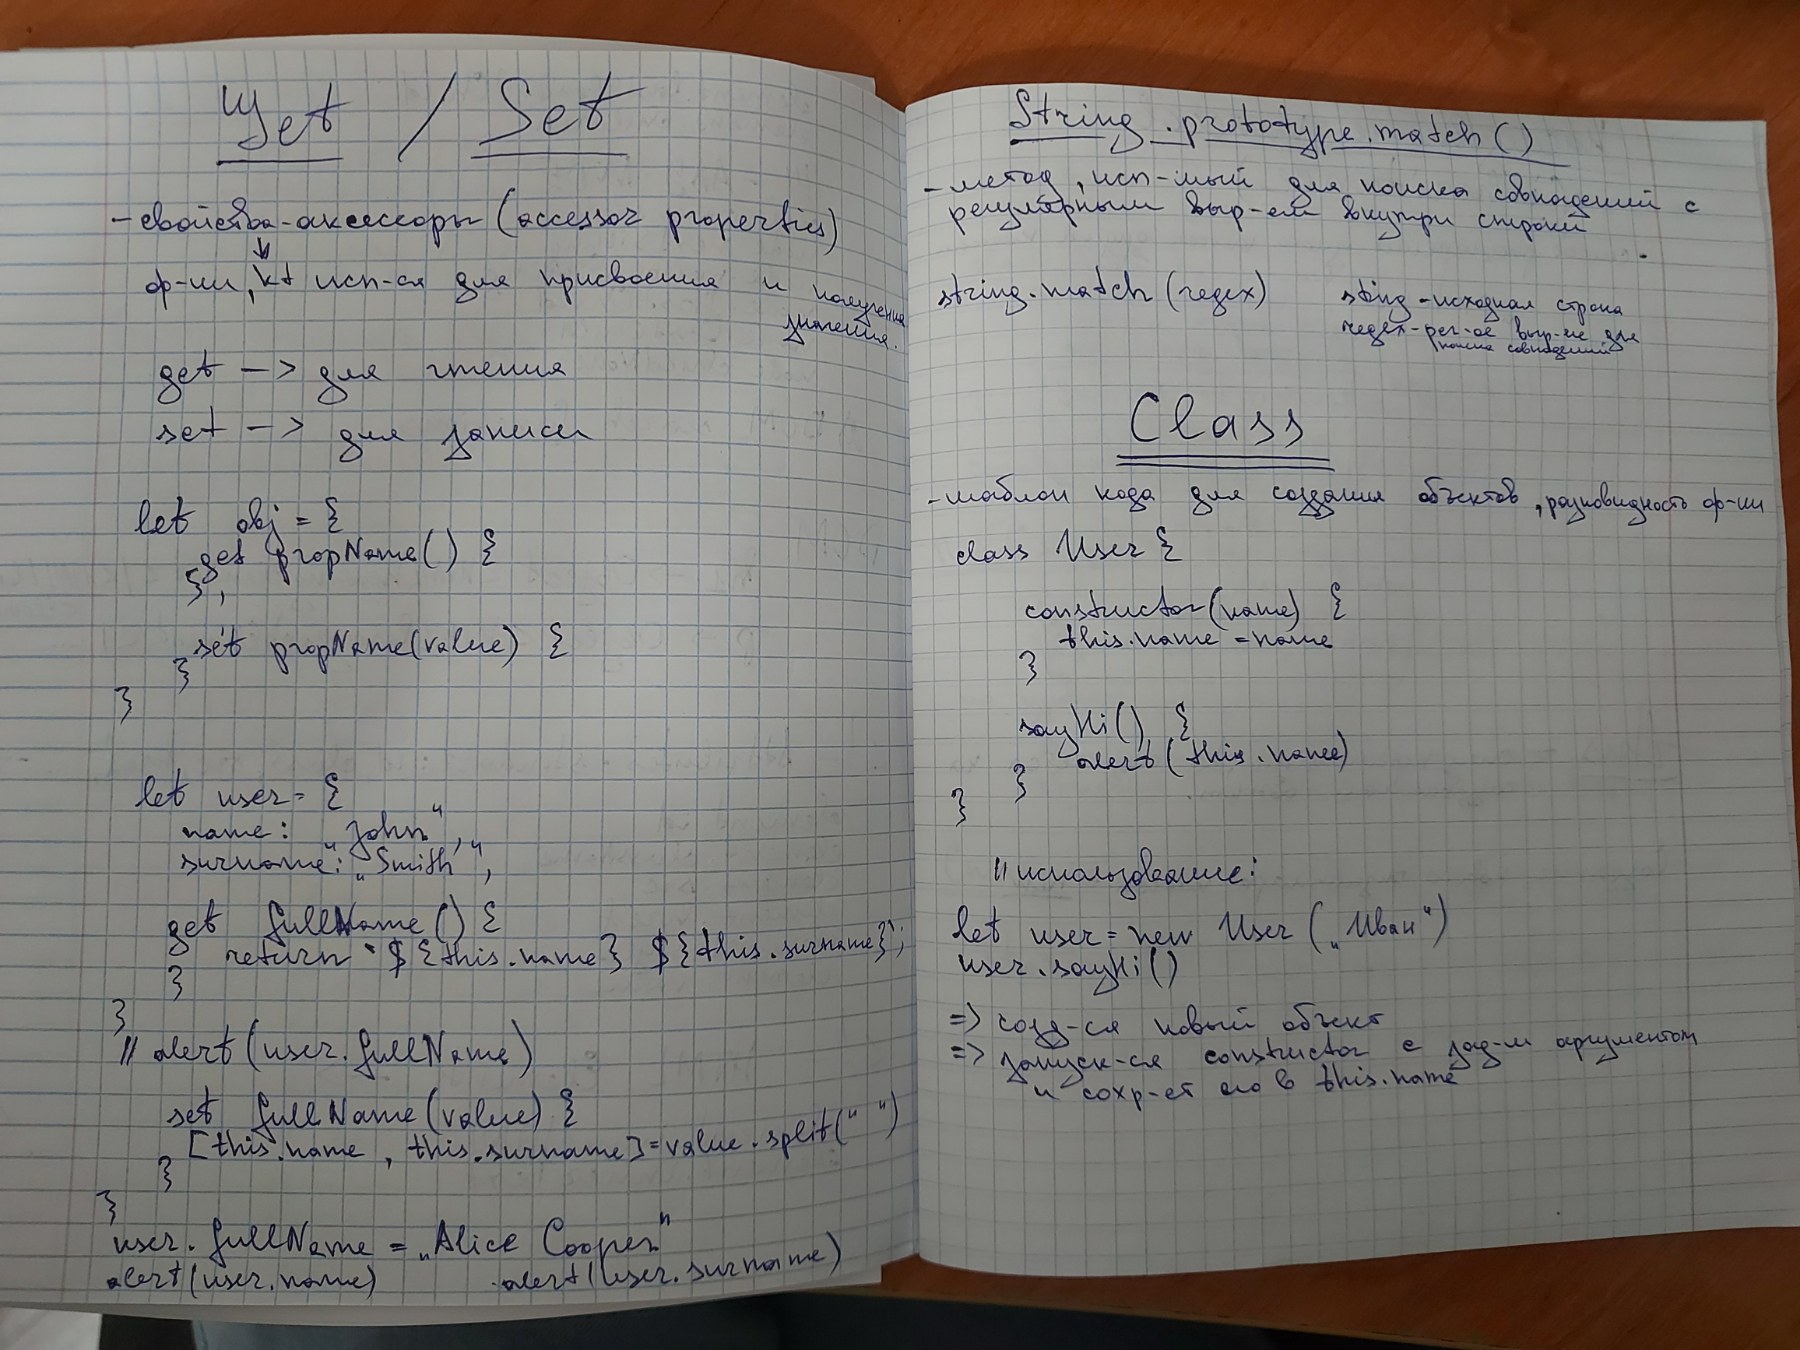 Get / Set
- свойства-аксессоры (accessor properties)
ф-ии, kt исп-ся для присвоения и получения
значения.
get —> для чтения
set —> для записи
let obj = {
get propName() {
},
set propName(value) {
}
}
let user = {
name: „John“,
surname: „Smith“,
get fullName() {
return `${this.name} ${this.surname}`;
}
}
// alert(user.fullName)
set fullName(value) {
[this.name, this.surname] = value.split(" ")
}
}
user.fullName = „Alice Cooper"
alert(user.name) alert(user.surname)
String.prototype.match()
- метод, исп-мый для поиска совпадений с
регулярным выр-ем внутри строки
string.match(regex) sting - исходная строка
regex - рег-ое выр-ие для
поиска совпадений
Class
- шаблон кода для создания объектов, разновидность ф-ии
class User {
constructor(name) {
this.name = name
}
sayHi() {
alert(this.name)
}
}
// использование:
let user = new User(„Иван“)
user.sayHi()
=> созд-ся новый объект
=> запуск-ся constructor с зад-м аргументом
и сохр-ет его в this.name